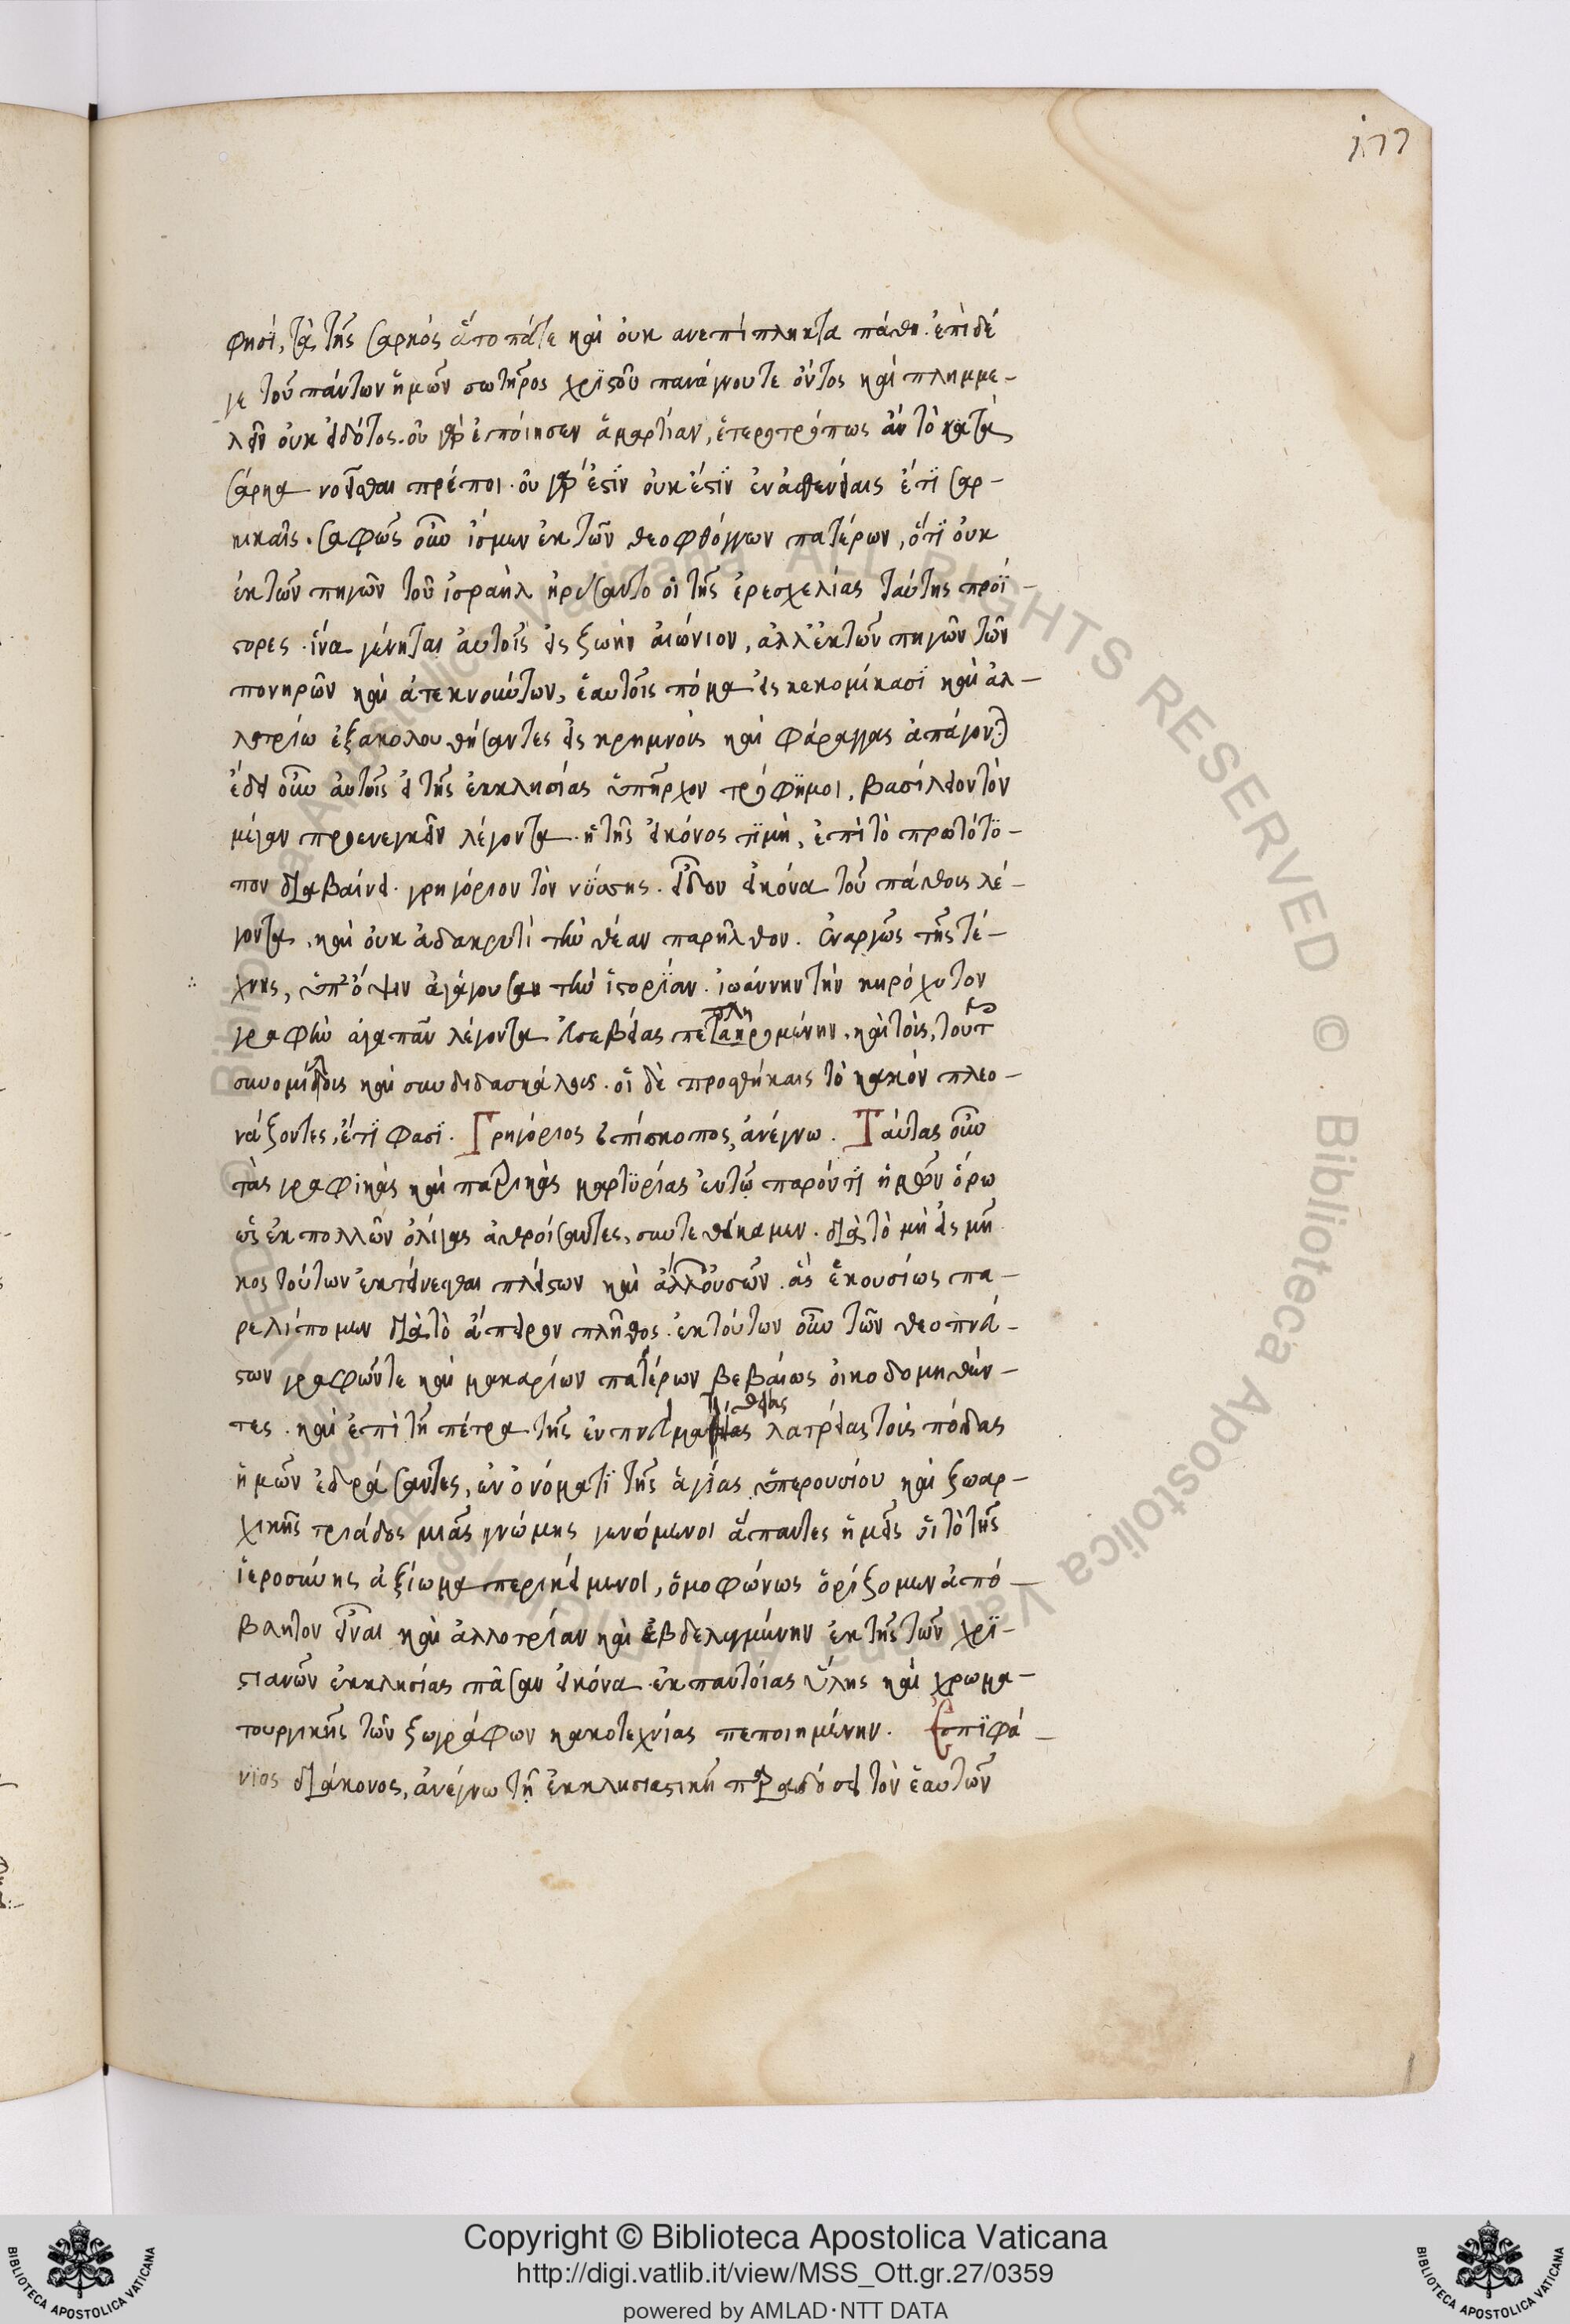 177
φησί, τὰ τῆς σαρκός ἄτοπά τε καὶ οὐκ ανεπίπληκτα πάθη. ἐπὶ δέ
γε τοῦ πάντων ἡμῶν σωτῆρος χριστοῦ πανάγνου τε ὄντος καὶ πλημμε-
λεῖν οὐκ εἰδότος. οὐ γὰρ ἐποίησεν ἁμαρτίαν, ἑτεροτρόπως ἂν τὸ κατὰ
σάρκα νοεῖσθαι πρέποι. οὐ γάρ ἐστιν οὐκέστιν ἐν ἀσθενείαις ἔτι σαρ-
κικαῖς. σαφῶς οὖν ἴσμεν ἐκ τῶν θεοφθόγγων πατέρων, ὅτι οὐκ
ἐκ τῶν πηγῶν τοῦ ἰσραὴλ ἠρύσαντο οἱ τῆς ἐρεσχελίας ταύτης προΐ-
στορες. ἵνα γένηται αὐτοῖς εἰς ζωὴν αἰώνιον, ἀλλ' ἐκ τῶν πηγῶν τῶν
πονηρῶν καὶ ἀτεκνούντων, ἑαυτοῖς πόμα εἰσκεκομίκασι καὶ ἀλ-
λοτρίω ἐξακολουθήσαντες εἰς κρημνοὺς καὶ φάραγγας ἀπάγονται
ἔδει οὖν αὐτοῖς εἰ τῆς ἐκκλησίας ὑπῆρχον τρόφιμοι, βασίλειον τὸν
μέγαν προενεγκεῖν λέγοντα. ἡ τῆς εἰκόνος τιμὴ, ἐπὶ τὸ πρωτότυ-
πον διαβαίνει. γρηγόριον τὸν νύσσης. εἶδον εἰκόνα τοῦ πάθους λέ-
γοντα, καὶ οὐκ ἀδακρυτὶ τὴν θέαν παρῆλθον. ἐναργῶς τῆς τέ-
χνης, ὑπ' ὄψιν ἀγάγουσαν τὴν ἱστορίαν. ἰωάννην τὴν κηρόχυτον
γραφὴν ἀγαπᾶν λέγοντα εὐσεβείας πεπληρωμένην. καὶ τοὺς, τούτων
συνομίλους καὶ συνδιδασκάλους. οἱ δὲ προσθήκαις τὸ κακόν πλεο-
νάζοντες, ἔτι φασί. Γρηγόριος ἐπίσκοπος, ἀνέγνω. Ταύτας οὖν
τὰς γραφικὰς καὶ πατρικὰς μαρτυρίας ἐν τῶ παρόντι ἡμῶν ὅρω
ὡς ἐκ πολλῶν ὀλίγας ἀθροίσαντες, συντεθείκαμεν. διὰ τὸ μὴ εἰς μῆ
κος τούτων ἐκτείνεσθαι πλείστων καὶ ἄλλων οὐσῶν. ἃς ἑκουσίως πα-
ρελίπομεν διὰ τὸ ἄπειρον πλῆθος. ἐκ τούτων οὖν τῶν θεοπνεύ-
στων γραφῶν τε καὶ μακαρίων πατέρων βεβαίως οἰκοδομηθέν-
τες. καὶ ἐπὶ τῆ πέτρα τῆς ἐν πνεύματι θείας λατρείας τοὺς πόδας
ἡμῶν ἑδράσαντες, ἐν ὀνόματι τῆς ἁγίας ὑπερουσίου καὶ ζωαρ-
χικῆς τριάδος μιᾶς γνώμης γενόμενοι ἅπαντες ἡμεῖς οἱ τὸ τῆς
ἱεροσύνης ἀξίωμα περικείμενοι, ὁμοφώνως ὁρίζομεν ἀπό-
βλητον εἶναι καὶ ἀλλοτρίαν καὶ ἐβδελυγμένην ἐκ τῆς τῶν χρι-
στιανῶν ἐκκλησίας πᾶσαν εἰκόνα ἐκ παντοίας ὕλης καὶ χρωμα-
τουργικῆς τῶν ζωγράφων κακοτεχνίας πεποιημένην. Ἐπιφά-
νιος διάκονος, ἀνέγνω τῆ ἐκκλησιαστικῆ παραδόσει τὸν ἑαυτῶν
© Biblioteca Apostolica Vaticana ALL RIGHTS RESERVED © Biblioteca Apostolica Vaticana
Copyright © Biblioteca Apostolica Vaticana
http://digi.vatlib.it/view/MSS_Ott.gr.27/0359
powered by AMLAD·NTT DATA
BIBLIOTECA APOSTOLICA VATICANA
BIBLIOTECA APOSTOLICA VATICANA